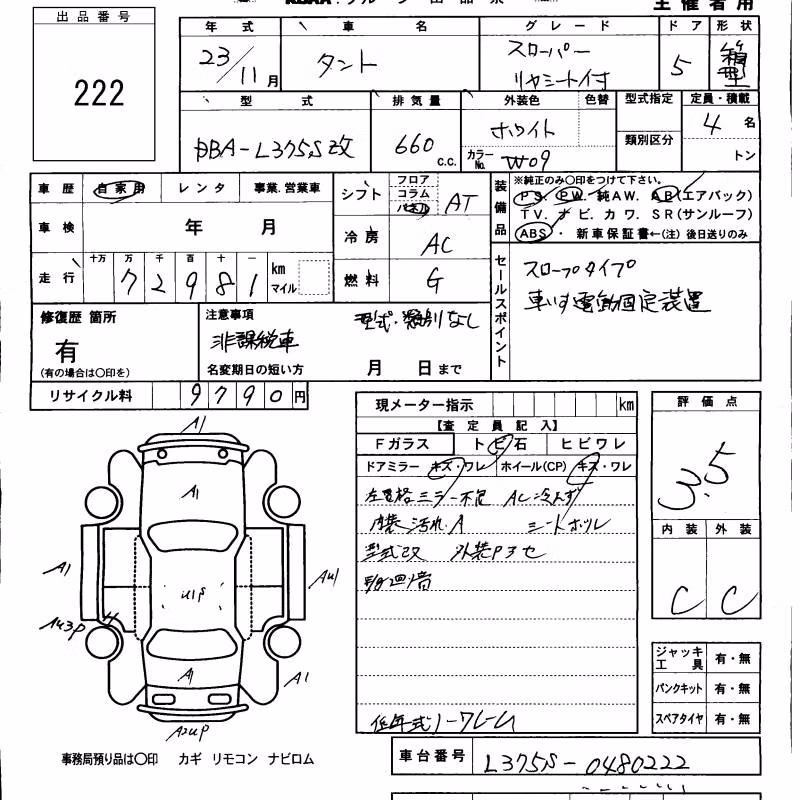 主催者用
出品番号
222
年式 車名 グレード ドア 形状
23/11月 タント スローパー リヤシート付 5 箱型
型式 排気量 外装色 色替 型式指定 定員・積載
DBA-L375S改 660 c.c. ホワイト 類別区分 4名
カラーNo. W09 トン
車歴 自家用 レンタ 事業.営業車
車検 年 月
走行 十万 万 千 百 十 一 km マイル
7 2 9 8 1
シフト フロア コラム AT
冷房 AC
燃料 G
装備品
※純正のみ〇印をつけて下さい。
PS. PW. 純AW. AB(エアバック)
TV. ナビ. カワ. SR(サンルーフ)
ABS ・ 新車保証書←(注)後日送りのみ
セールスポイント
スロープタイプ
車いす電動固定装置
修復歴 箇所
有
(有の場合は〇印を)
注意事項 型式・類別なし
非課税車
名変期日の短い方 月 日まで
リサイクル料 9790円
現メーター指示 km
【査定員記入】
Fガラス トビ石 ヒビワレ
ドアミラー キズ・ワレ ホイール(CP) キズ・ワレ
ミラー不良 AC冷えず
内装汚れ.A シートホツレ
型式改 外装P3セ
低年式ノークレーム
評価点
3.5
内装 外装
C C
ジャッキ工具 有・無
パンクキット 有・無
スペアタイヤ 有・無
A1
A1
A1
U1P
AU1
AU3P
A1
A1
A2UP
事務局預り品は〇印 カギ リモコン ナビロム
車台番号 L375S-0480222